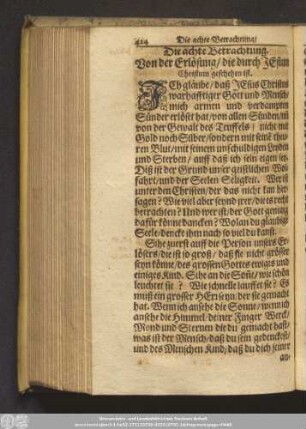 424 Die achte Betrachtung/
Die achte Betrachtung.
Von der Erlösung/ die durch JEsum
Christum geschehen ist.
JCh gläube/ daß JEsus Christus
warhafftiger Gott und Mensch/
mich armen und verdampten
Sünder erlöset hat/ von allen Sünden/
von der Gewalt des Teuffels/ nicht mit
Gold noch Silber/ sondern mit seinē theu-
ren Blut/ mit seinem unschuldigen Leyden
und Sterben/ auff daß ich sein eigen sey.
Diß ist der Grund unser geistlichen Wol-
fahrt/ und der Seelen Seligkeit. Wer ist
unter den Christen/ der das nicht kan her-
sagen? Wie viel aber seynd yrer/ die es recht
betrachten? Und wer ist/ der Gott genug
dafür könne dancken? Wolan du gläubige
Seele/ dencke ihm nach so viel du kanst.
Sihe zuerst auff die Person unsers Er-
lösers/ die ist so groß/ daß sie nicht grösser
seyn könne/ des grossen Gottes einiges und
einiges Kind. Sihe an die Sonne/ wie schön
leuchtet sie? Wie schnelle lauffet sie? Es
muß ein grosser HErr seyn/ der sie gemacht
hat. Wenn ich ansehe die Sonne/ wenn ich
ansehe die Himmel/ deiner Finger Werck/
Mond und Sternen die du gemacht hast/
was ist der Mensch/ daß du sein gedenckest/
und des Menschen Kind/ daß du dich seiner